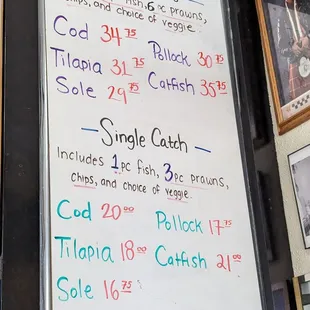 fish, 6 pc prawns,
chips, and choice of veggie
Cod 34 75 Pollock 30 75
Tilapia 31 75 Catfish 35 75
Sole 29 75
– Single Catch –
Includes 1 pc fish, 3 pc prawns,
chips, and choice of veggie
Cod 20 00 Pollock 17 75
Tilapia 18 00 Catfish 21 00
Sole 16 75